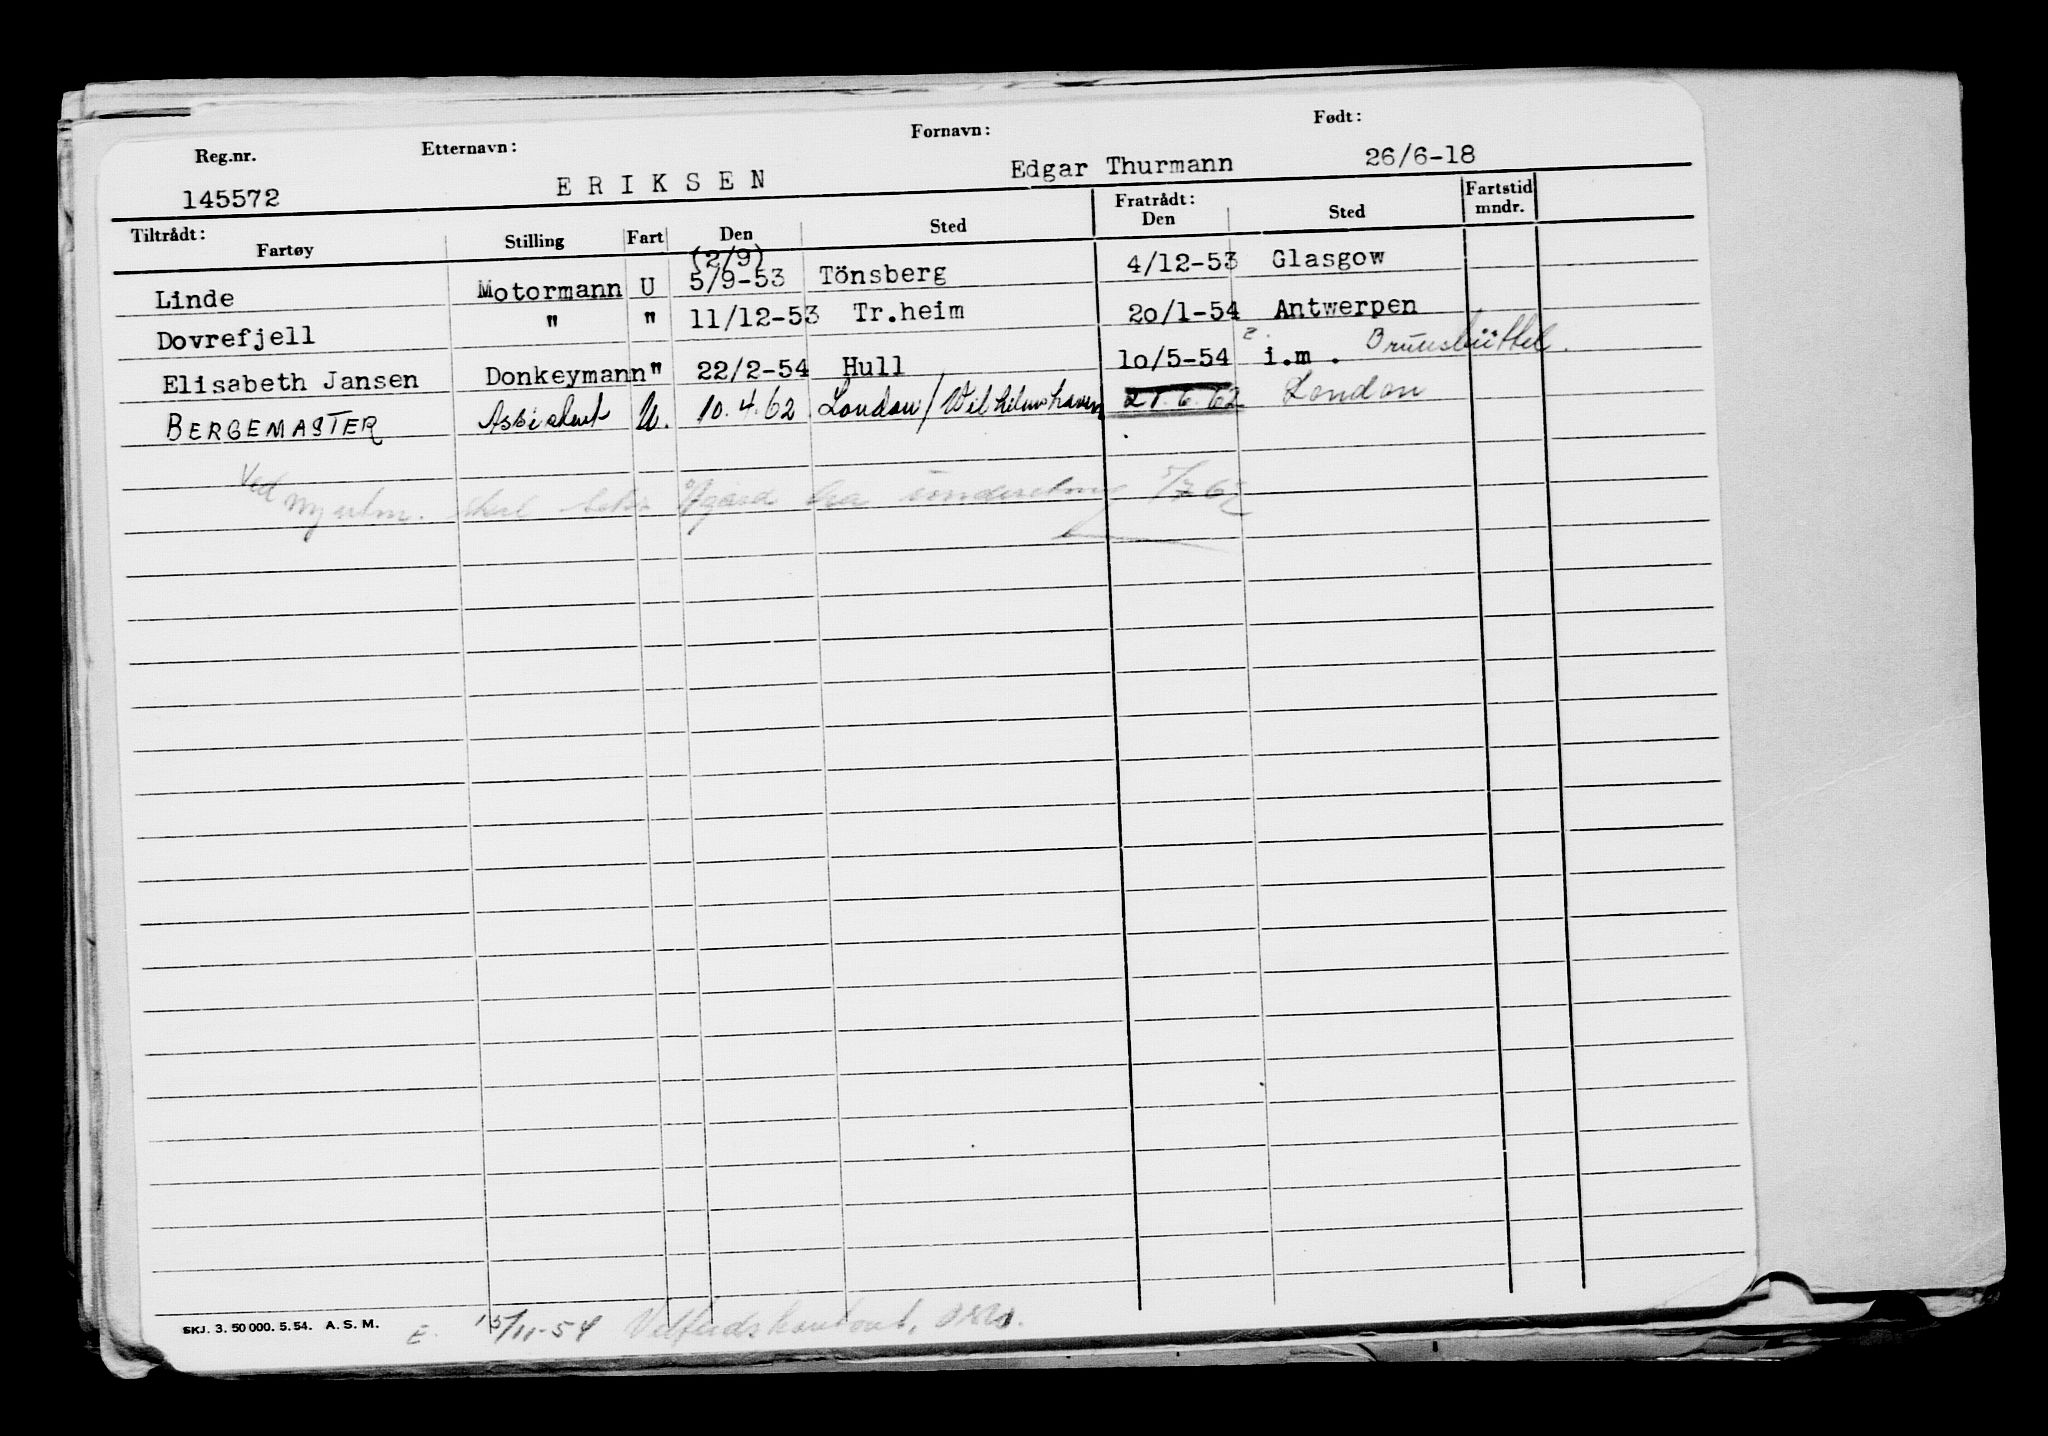 Reg.nr. Etternavn: Fornavn: Født:
145572 ERIKSEN Edgar Thurmann 26/6-18
Tiltrådt: Fratrådt:
Fartøy Stilling Fart Den Sted Den Sted Fartstid mndr.
(2/9)
Linde Motormann U 5/9-53 Tönsberg 4/12-53 Glasgow
Dovrefjell " " 11/12-53 Tr.heim 20/1-54 Antwerpen
Elisabeth Jansen Donkeymann " 22/2-54 Hull 10/5-54 i.m. Brunsbüttel.
BERGEMASTER Assistent U. 10.4.62 London/Wilhelmshaven 21.6.62 London
Ved ny utm. skal 5/7 62
SKJ. 3. 50 000. 5. 54. A. S. M. E. 15/11-54 Velferdskontoret, Oslo.